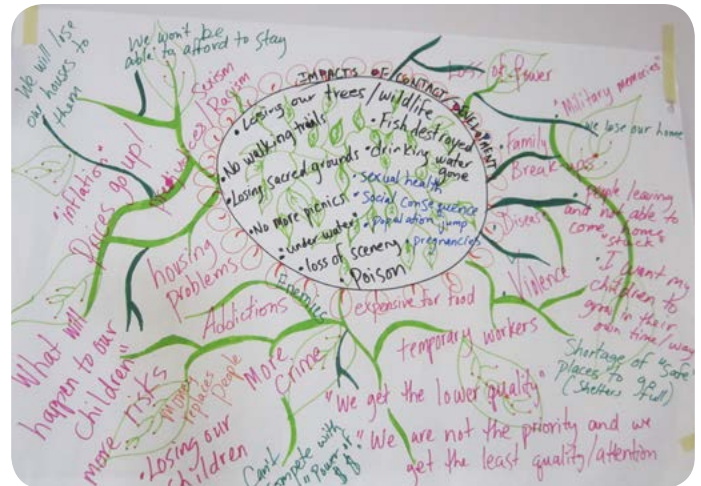 IMPACTS OF CONTACT/DEVELOPMENT
• Losing our trees/wildlife
• No walking trails
• Fish destroyed
• drinking water
gone
• Losing sacred grounds
• sexual health
• Social Consequence
• No more picnics
• population jump
• under water
• pregnancies
• loss of scenery
• Poison
We will lose
our houses to
them
We won't be
able to afford to stay
Sexism
Racism
"inflation"
Prices go up!
housing
problems
What will
happen to our
children"
Addictions
Enemies
more risks
Money
replaces
people
More
Crime
• Losing our
children
Can't
compete with
"Power of
$$
expensive for food
temporary workers
"We get the lower quality"
"We are not the priority and we
get the least quality/attention
Loss of Power
"Military memories"
we lose our home
• Family
Break-ups
• people leaving
and not able to
come home
"stuck"
• Disease
• Violence
• I want my
children to
grow in their
own time/way
Shortage of "safe"
places to go
(Shelters full)